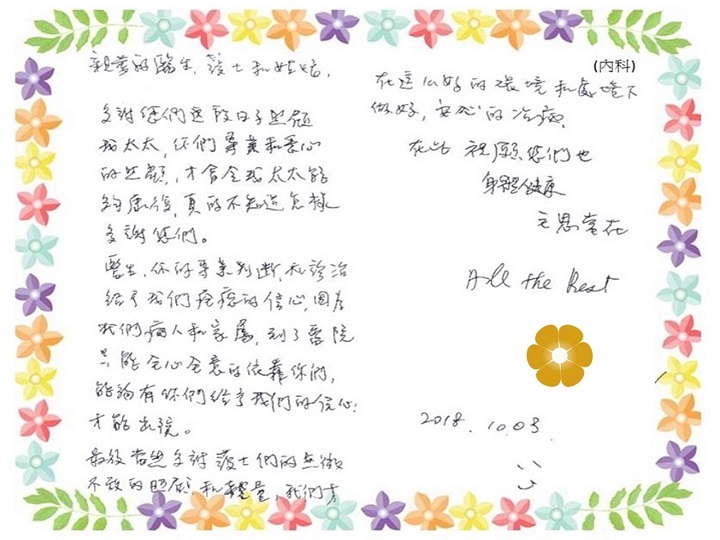 親愛的醫生, 護士和姑娘,
多謝您們這段日子照顧
我太太, 你們專業和愛心
的照顧, 才會令我太太能
夠康復, 真的不知道怎樣
多謝您們。
醫生, 你的專業判斷, 和診治
給了我們痊癒的信心, 因為
我們病人和家屬, 到了醫院
只能全心全意的依靠你們,
能夠有你們給予我們的信心,
才能出院。
最後當然多謝護士們的無微
不致的照顧, 和體量, 我們才
(內科)
在這么好的環境和處境下
做好, 安心的治病,
在此 祝願您們也
身體健康
主恩常在
All the Best
2018. 10.03.